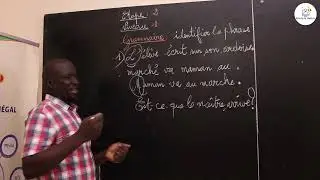 Etape : 2
Niveau : 1
Grammaire : identifier la phrase
1) L'élève écrit sur son ardoise
marché va maman au.
Maman va au marche.
Est-ce-que le maître arrive?
ÉGAL